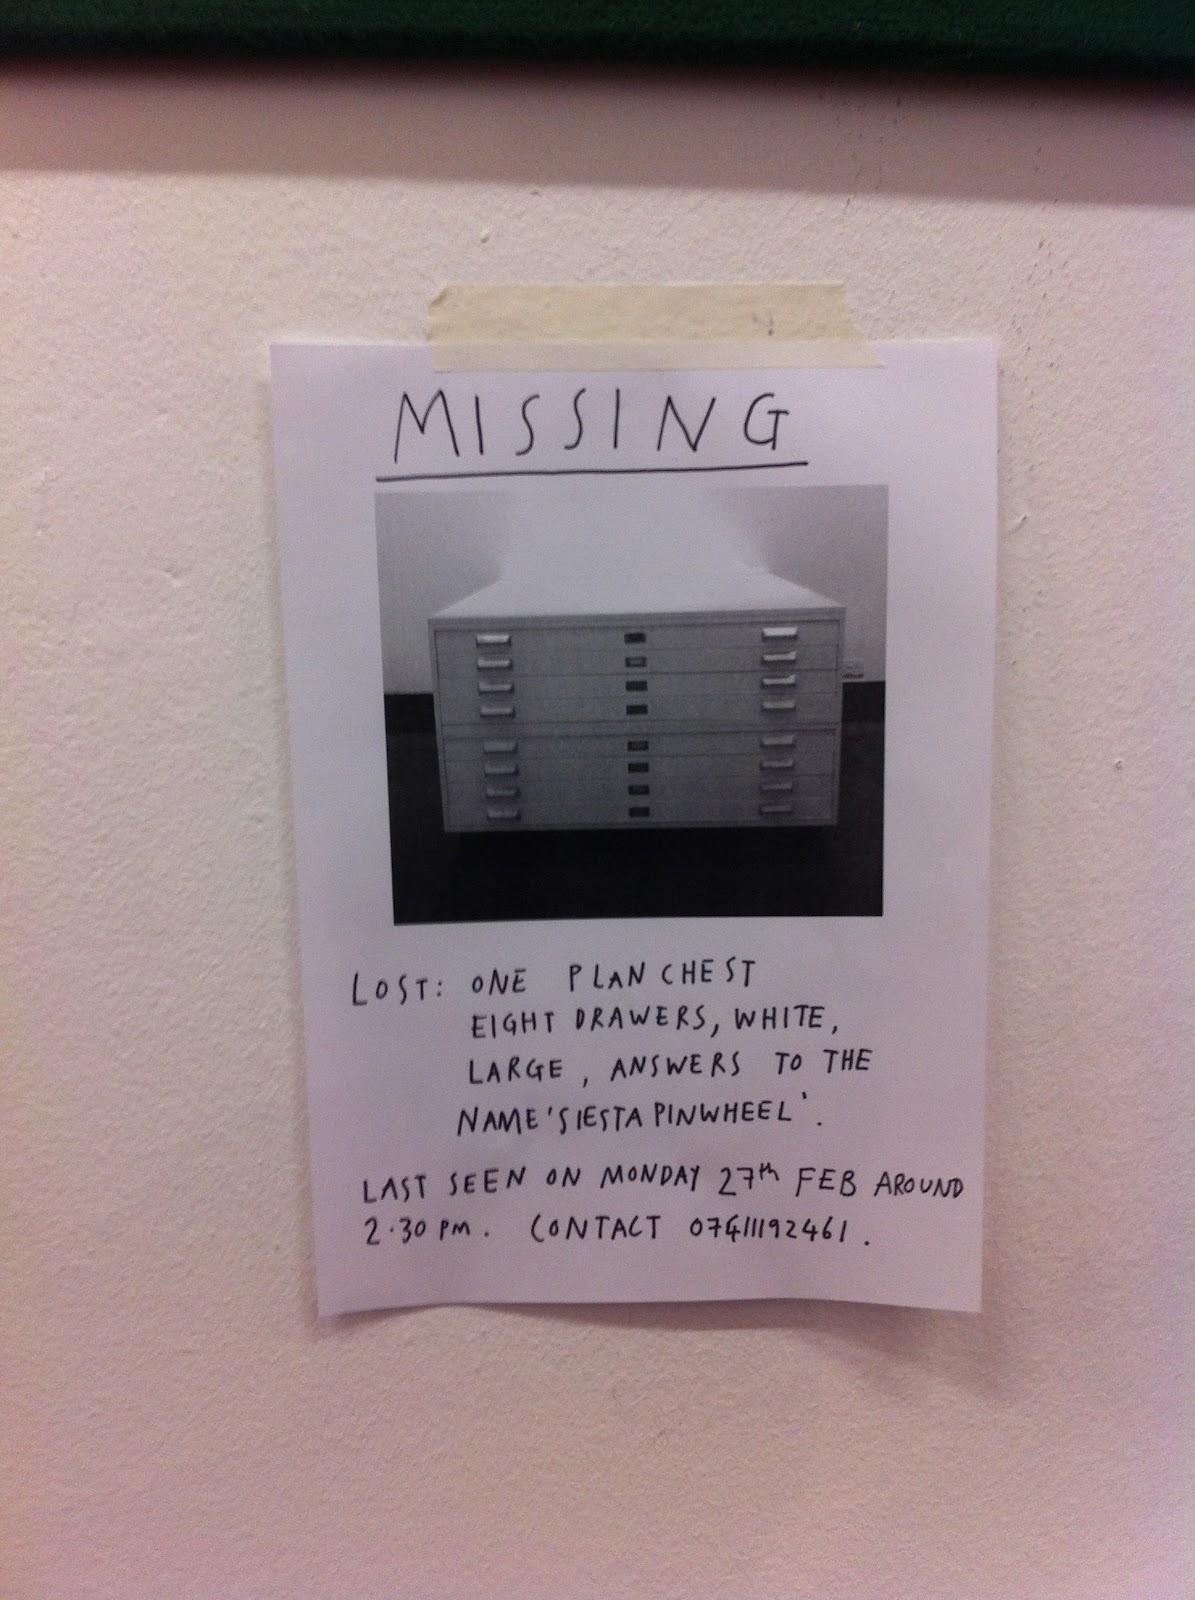 MISSING
LOST: ONE PLAN CHEST
EIGHT DRAWERS, WHITE,
LARGE, ANSWERS TO THE
NAME 'SIESTA PINWHEEL'.
LAST SEEN ON MONDAY 27th FEB AROUND
2.30 PM. CONTACT 07411192461.